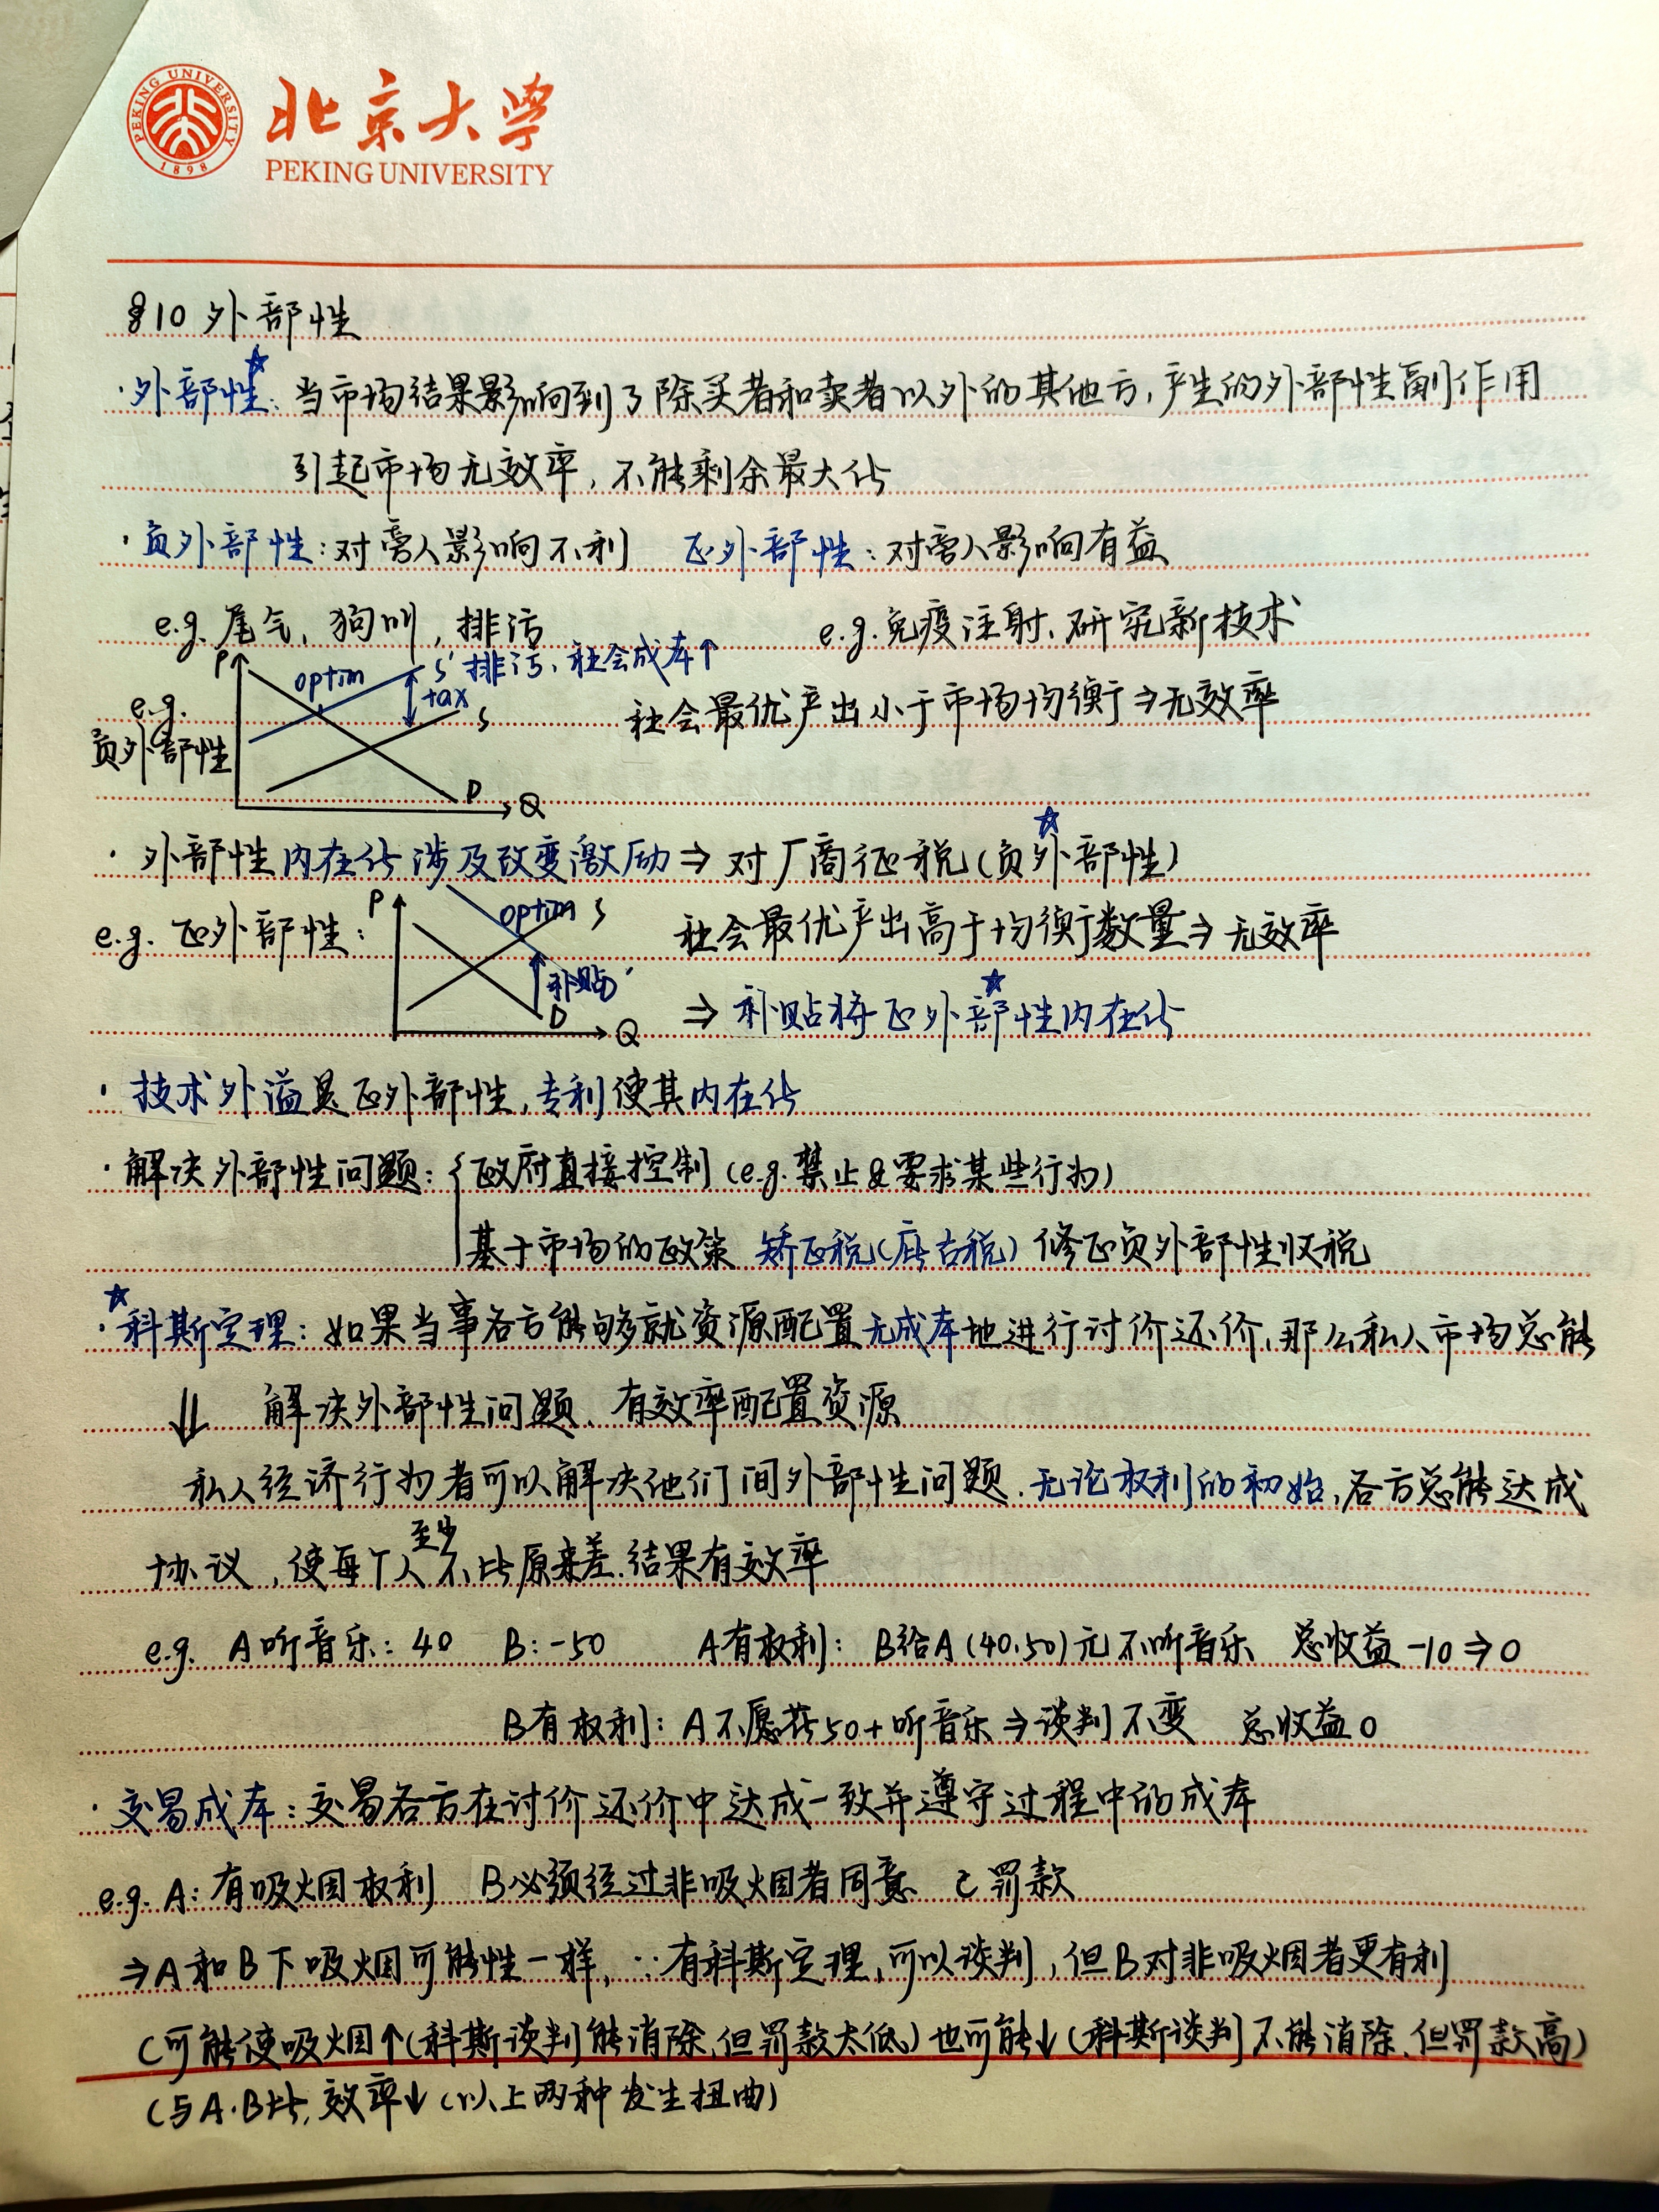 PEKING UNIVERSITY
1898
北京大学
PEKING UNIVERSITY
§10 外部性
·外部性☆: 当市场结果影响到了除买者和卖者以外的其他方,产生的外部性副作用
引起市场无效率,不能剩余最大化
·负外部性:对旁人影响不利 正外部性:对旁人影响有益
e.g. 尾气、狗叫,排污 e.g.免疫注射、研究新技术
P optim S' 排污、社会成本↑
tax
e.g. S 社会最优产出小于市场均衡⇒无效率
负外部性
D Q
·外部性内在化涉及改变激励⇒对厂商征税(负外部性)☆
e.g. 正外部性: P optim S 社会最优产出高于均衡数量⇒无效率
补贴
D Q ⇒补贴将正外部性内在化☆
·技术外溢是正外部性,专利使其内在化
·解决外部性问题:{政府直接控制(e.g.禁止&要求某些行为)
基于市场的政策 矫正税(庇古税)修正负外部性收税
☆
·科斯定理:如果当事各方能够就资源配置无成本地进行讨价还价,那么私人市场总能
⇓ 解决外部性问题、有效率配置资源
私人经济行为者可以解决他们间外部性问题.无论权利的初始,各方总能达成
协议,使每个人至少不比原来差.结果有效率
e.g. A听音乐:40 B:-50 A有权利:B给A(40.50)元不听音乐 总收益-10⇒0
B有权利:A不愿花50+听音乐⇒谈判不变 总收益0
·交易成本:交易各方在讨价还价中达成一致并遵守过程中的成本
e.g. A:有吸烟权利 B必须经过非吸烟者同意 C罚款
⇒A和B下吸烟可能性一样,∵有科斯定理,可以谈判,但B对非吸烟者更有利
C可能使吸烟↑(科斯谈判能消除,但罚款太低)也可能↓(科斯谈判不能消除、但罚款高)
(与A.B比,效率↓(以上两种发生扭曲)